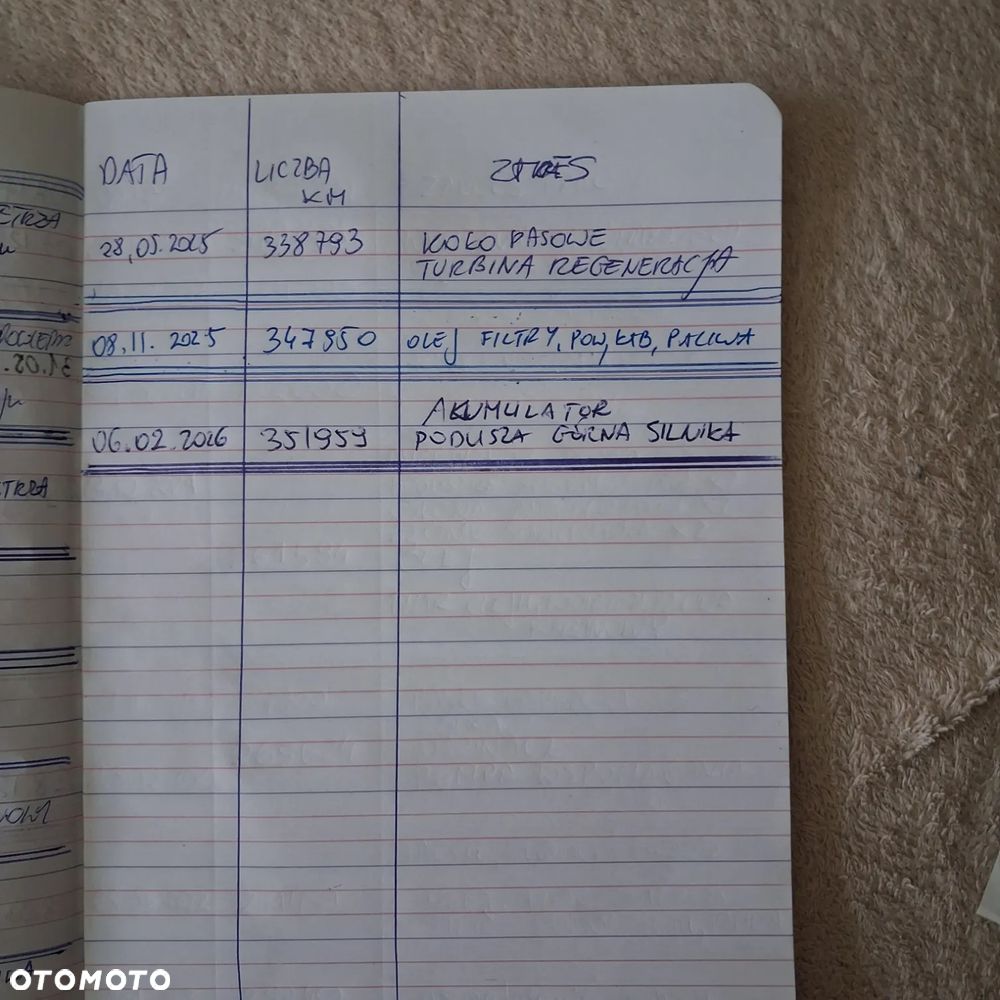 DATA LICZBA KM ZAKRES
28.05.2025 338793 KOŁO PASOWE
TURBINA REGENERACJA
08.11.2025 347950 OLEJ FILTRY, POW, KAB, PALIWA
AKUMULATOR
06.02.2026 351959 PODUSZA GÓRNA SILNIKA
OTOMOTO